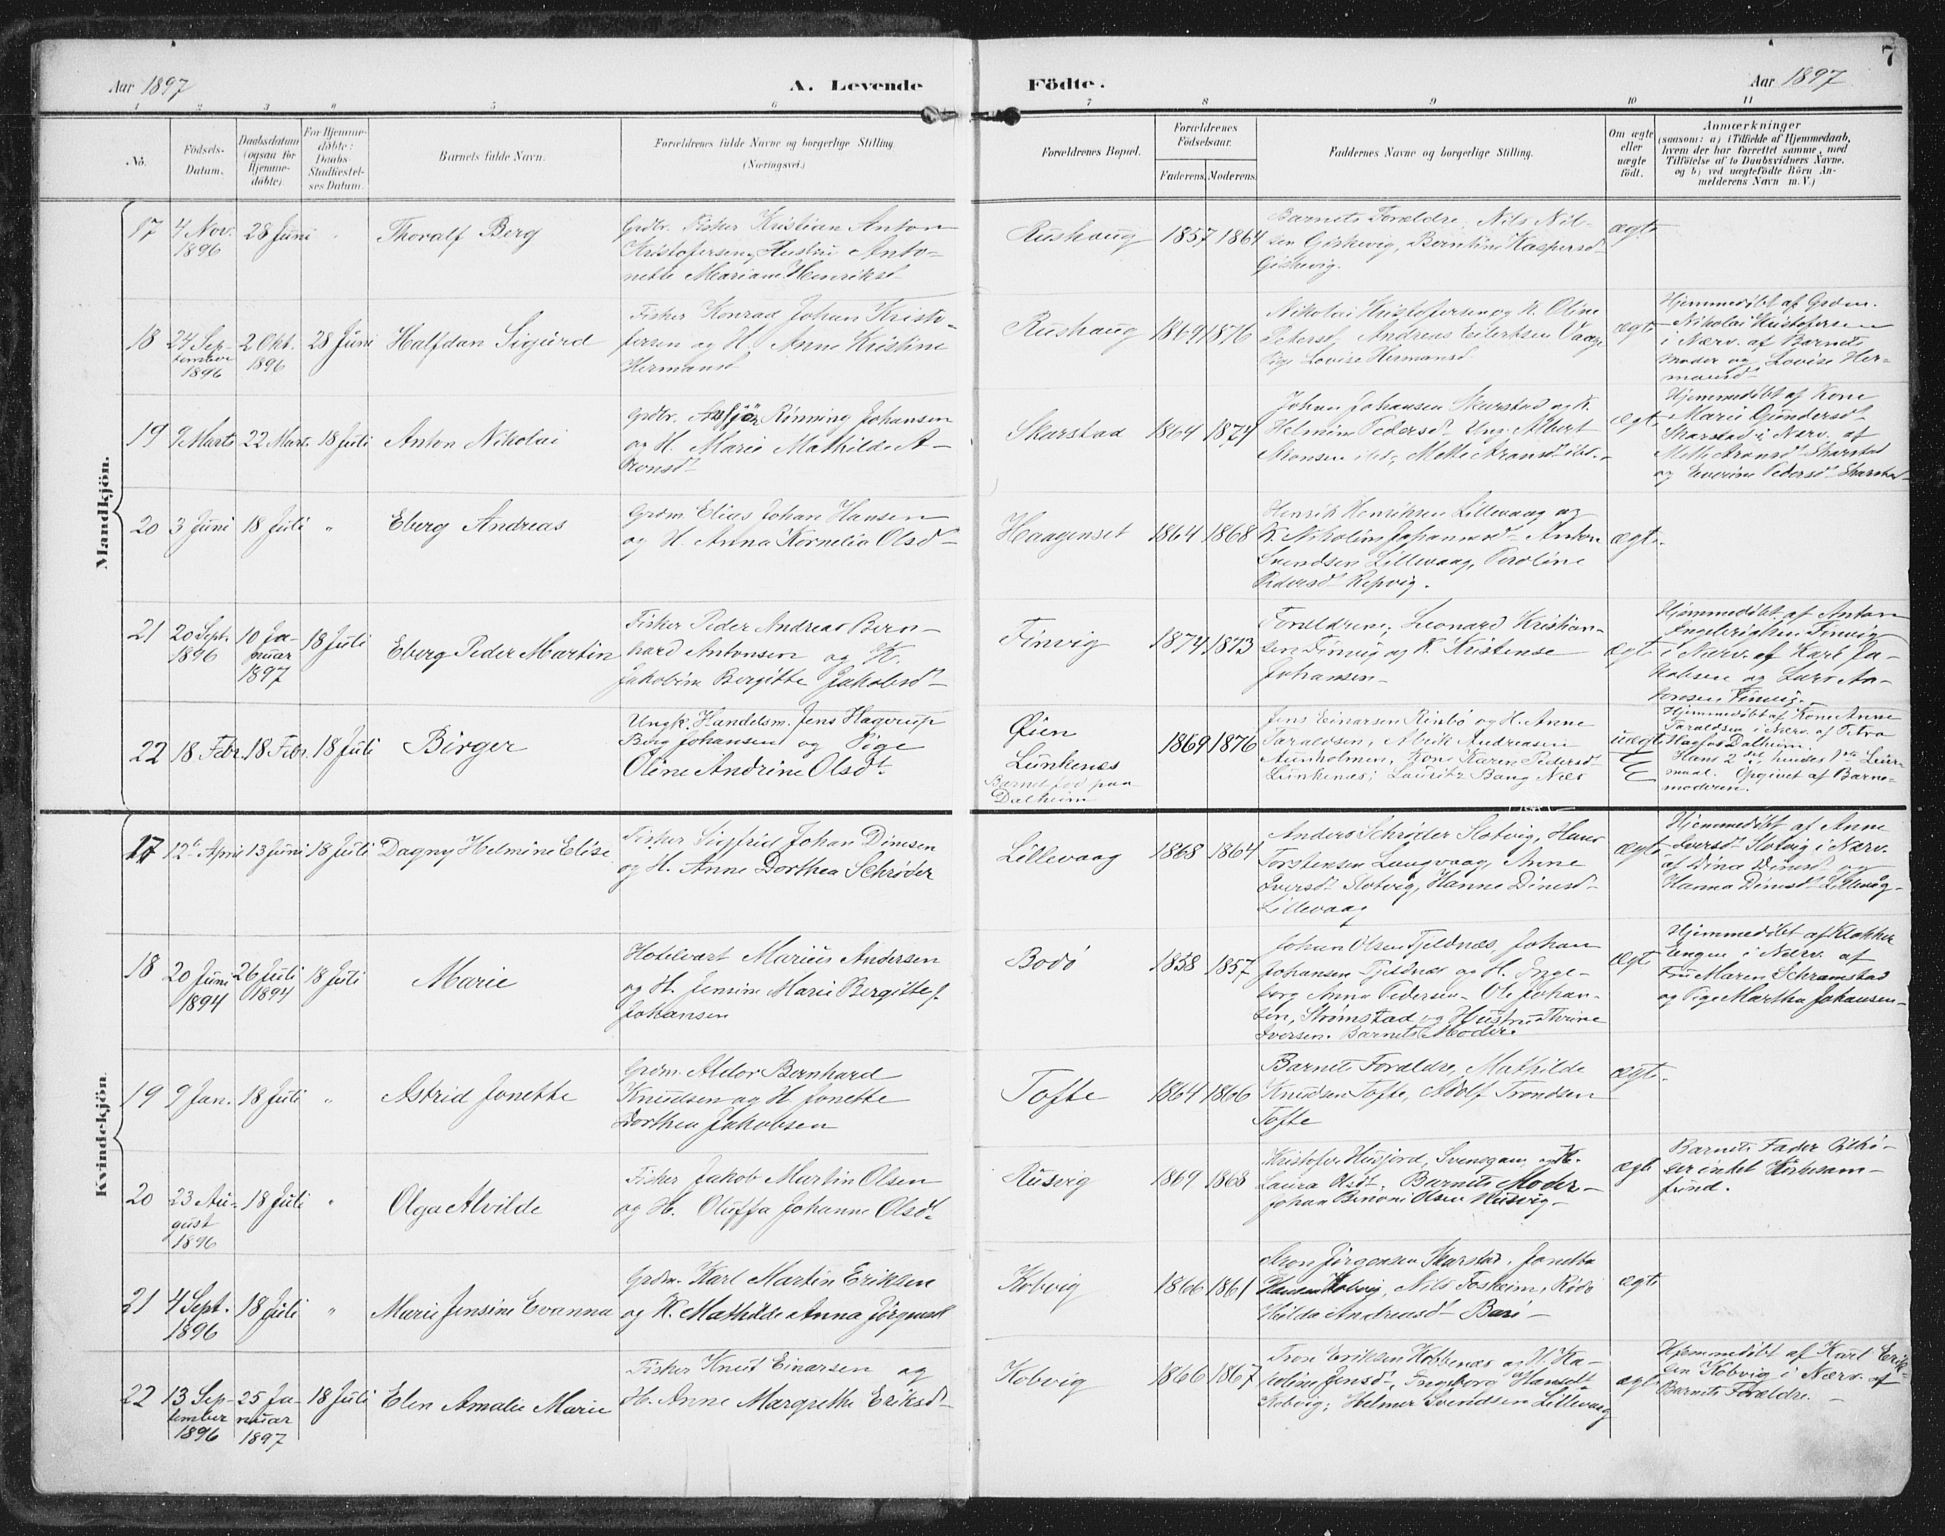 7
Aar 1897
A. Levende
Födte.
Aar 1897
1 2 3 4 5 6 7 8 9 10 11
No.
Födsels-
Datum.
Daabsdatum
(ogsaa for
Hjemme-
döbte).
For Hjemme-
döbte:
Daabs-
Stadfæstel-
ses Datum.
Barnets fulde Navn.
Forældrenes fulde Navne og borgerlige Stilling
(Næringsvei.)
Forældrenes Bopæl.
Forældrenes
Födselsaar.
Faderens. Moderens.
Faddernes Navne og borgerlige Stilling.
Om ægte
eller
uægte
födt.
Anmærkninger
(saasom: a) i Tilfælde af Hjemmedaab,
hvem der har forrettet samme, med
Tilföielse af to Daabsvidners Navne,
og b) ved uægtefödte Börn An-
melderens Navn m. V.)
Mandkjön.
17
4 Nov.
1896
28 Juni
"
Thoralf Berg
Grdbr. Fisker Kristian Anton
Kristofersen, Hustru Anto-
nette Mariam Henriksd
Rushaug
1857 1864
Barnets Forældre, Nils Nil-
sen Giskevig, Berntine Kaspersd
Giskevig.
ægte
18
24 Sep-
tember
1896
2 Okt.
1896
28 Juni
Halfdan Sigurd
Fisker Konrad Johan Kristo-
fersen og H. Anne Kristine
Hermansd
Rushaug
1869 1876
Nikolai Kristofersen og K. Oline
Pedersd, Andreas Eilertsen Vaage
Pige Lovise Hermansd
ægte
Hjemmedöbt af Grdm.
Nikolai Kristofersen
i Nærv. af Barnets
Moder og Lovise Her-
mansd
19
9 Marts
22 Mart.
18 Juli
Anton Nikolai
Grdbr. Asbjör Rönning Johansen
og H. Marie Mathilde A-
ronsd
Skarstad
1864 1874
Johan Johansen Skarstad og K.
Helmine Pedersd. Ung. Albert
Aronsen ibd, Mette Aronsd ibd.
ægte
Hjemmedöbt af Kone
Marie Gundersd
Skarstad i Nærv. af
Mette Aronsd Skarstad
og Everine Pedersd Skarstad
20
3 Juni
18 Juli
"
Eberg Andreas
Grdm Elias Johan Hansen
og H. Anna Kornelia Olsd
Haagenset
1864 1868
Henrik Henriksen Lillevaag og
K. Nikoline Johannsd Anton
Svendsen Lillevaag, Peroline
Pedersd Repvig.
ægte
21
20 Sept.
1896
10 Ja-
nuar
1897
18 Juli
Eberg Peder Martin
Fisker Peder Andreas Bern-
hard Antonsen og K.
Jakobine Bergitte Jakobsd
Finvig
1874 1873
Forældrene, Leonard Kristian-
sen Finvig og K. Kristense
Johansen
ægte
Hjemmedöbt af Anton
Ingebrigtsen Finvig
i Nærv. af Karl Ja-
kobsen og Lars An-
tonsen Finvig.
22
18 Febr.
18 Febr.
18 Juli
Birger
Ungk. Handelsm. Jens Hagerup
Berg Johansen og Pige
Oline Andrine Olsd.
Øien
Lunkenes
Barnet fod paa
Dalheim
1869 1876
Jens Einarsen Rinbö og H. Anne
Taraldsen, Alrik Andreasen
Aunholmen, Kone Karen Pedersd
Lunkenes; Lauritz Bang Næs
uægte
Hjemmedöbt af Kone Anne
Taraldsen i Nærv. af Petra
Hagfos Dalheim.
Hans 2det, hendes 1ste Leier-
maal. Opgivet af Barne-
moderen.
Kvindekjön.
17
12te April
13 Juni
18 Juli
Dagny Helmine Elise
Fisker Sigfrid Johan Dinesen
og H. Anne Dorthea Schrøder
Lillevaag
1868 1864
Anders Schrøder Slotvig, Hans
Torstensen Langvaag, Anne
Iversd Slotvig, Hanne Dinesd
Lillevaag
ægte
Hjemmedöbt af Anne
Iversd Slotvig i Nærv.
af Dina Dinesd og
Hanna Dinesd Lillevåg
18
20 Juni
1894
26 Juli
1894
18 Juli
Marie
Hotelvært Marius Andersen
og H. Jensine Marie Bergitte f.
Johansen
Bodö
1858 1857
Johan Olsen Tjeldnæs, Johan
Johansen Tjeldnæs og H. Inge-
borg Anna Pedersen. Ole Johan-
sen, Strømstad og Hustru Thrine
Iversen. Barnets Moder.
ægte
Hjemmedöbt af Klokker
Engen i Nærv. af
Fru Maren Schramstad
og Pige Martha Johansen
19
9 Jan.
18 Juli
"
Astrid Jonette
Grdm. Aldor Bernhard
Knudsen og H. Jonette
Dorthea Jakobsen
Tofte
1864 1866
Barnets Forældre, Mathilde
Knudsen Tofte, Adolf Trondsen
Tofte
ægte
20
23 Au-
gust
1896
18 Juli
"
Olga Alvilde
Fisker Jakob Martin Olsen
og H. Oluffa Johanne Olsd.
Rusvig
1869 1868
Kristofer Husjord, Svenegam, og H.
Laura Olsd. Barnets Moder
Johan Benoni Olsen Husvig
ægte
Barnets Fader tilhö-
rer intet Kirkesam-
fund.
21
4 Sept.
1896
18 Juli
"
Marie Jensine Evanna
Grdm. Karl Martin Eriksen
og K. Mathilde Anna Jörgensd
Kobvig
1866 1861
Aron Jørgensen Skarstad, Jonetta
Hansen Kobvig, Nils Foskeim, Rödö
Hilda Andreasd Barö
ægte
22
13 Sep-
tember
1896
25 Ja-
nuar
1897
18 Juli
Elen Amalie Marie
Fisker Knut Einarsen og
H. Anne Margrethe Eriksd
Kobvig
1866 1867
Tron Eriksen Kobbenæs og H. Ka-
roline Jensd, Ingeborg Hansd
Kobvig; Helmer Svendsen Lillevaag
ægte
Hjemmedöbt af Karl Erik-
sen Kobvig i Nærv. af
Barnets Forældre.